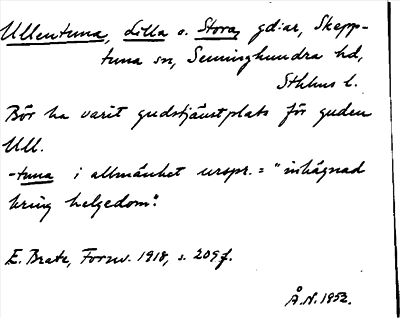 Ullentuna, Lilla o. Stora, gd:ar, Skepp-
tuna sn, Seminghundra hd,
Sthlms l.
Bör ha varit gudstjänstplats för guden
Ull.
-tuna i allmänhet urspr. = "inhägnad
kring helgedom".
E. Brate, Fornv. 1918, s. 209f.
Å.N. 1952.